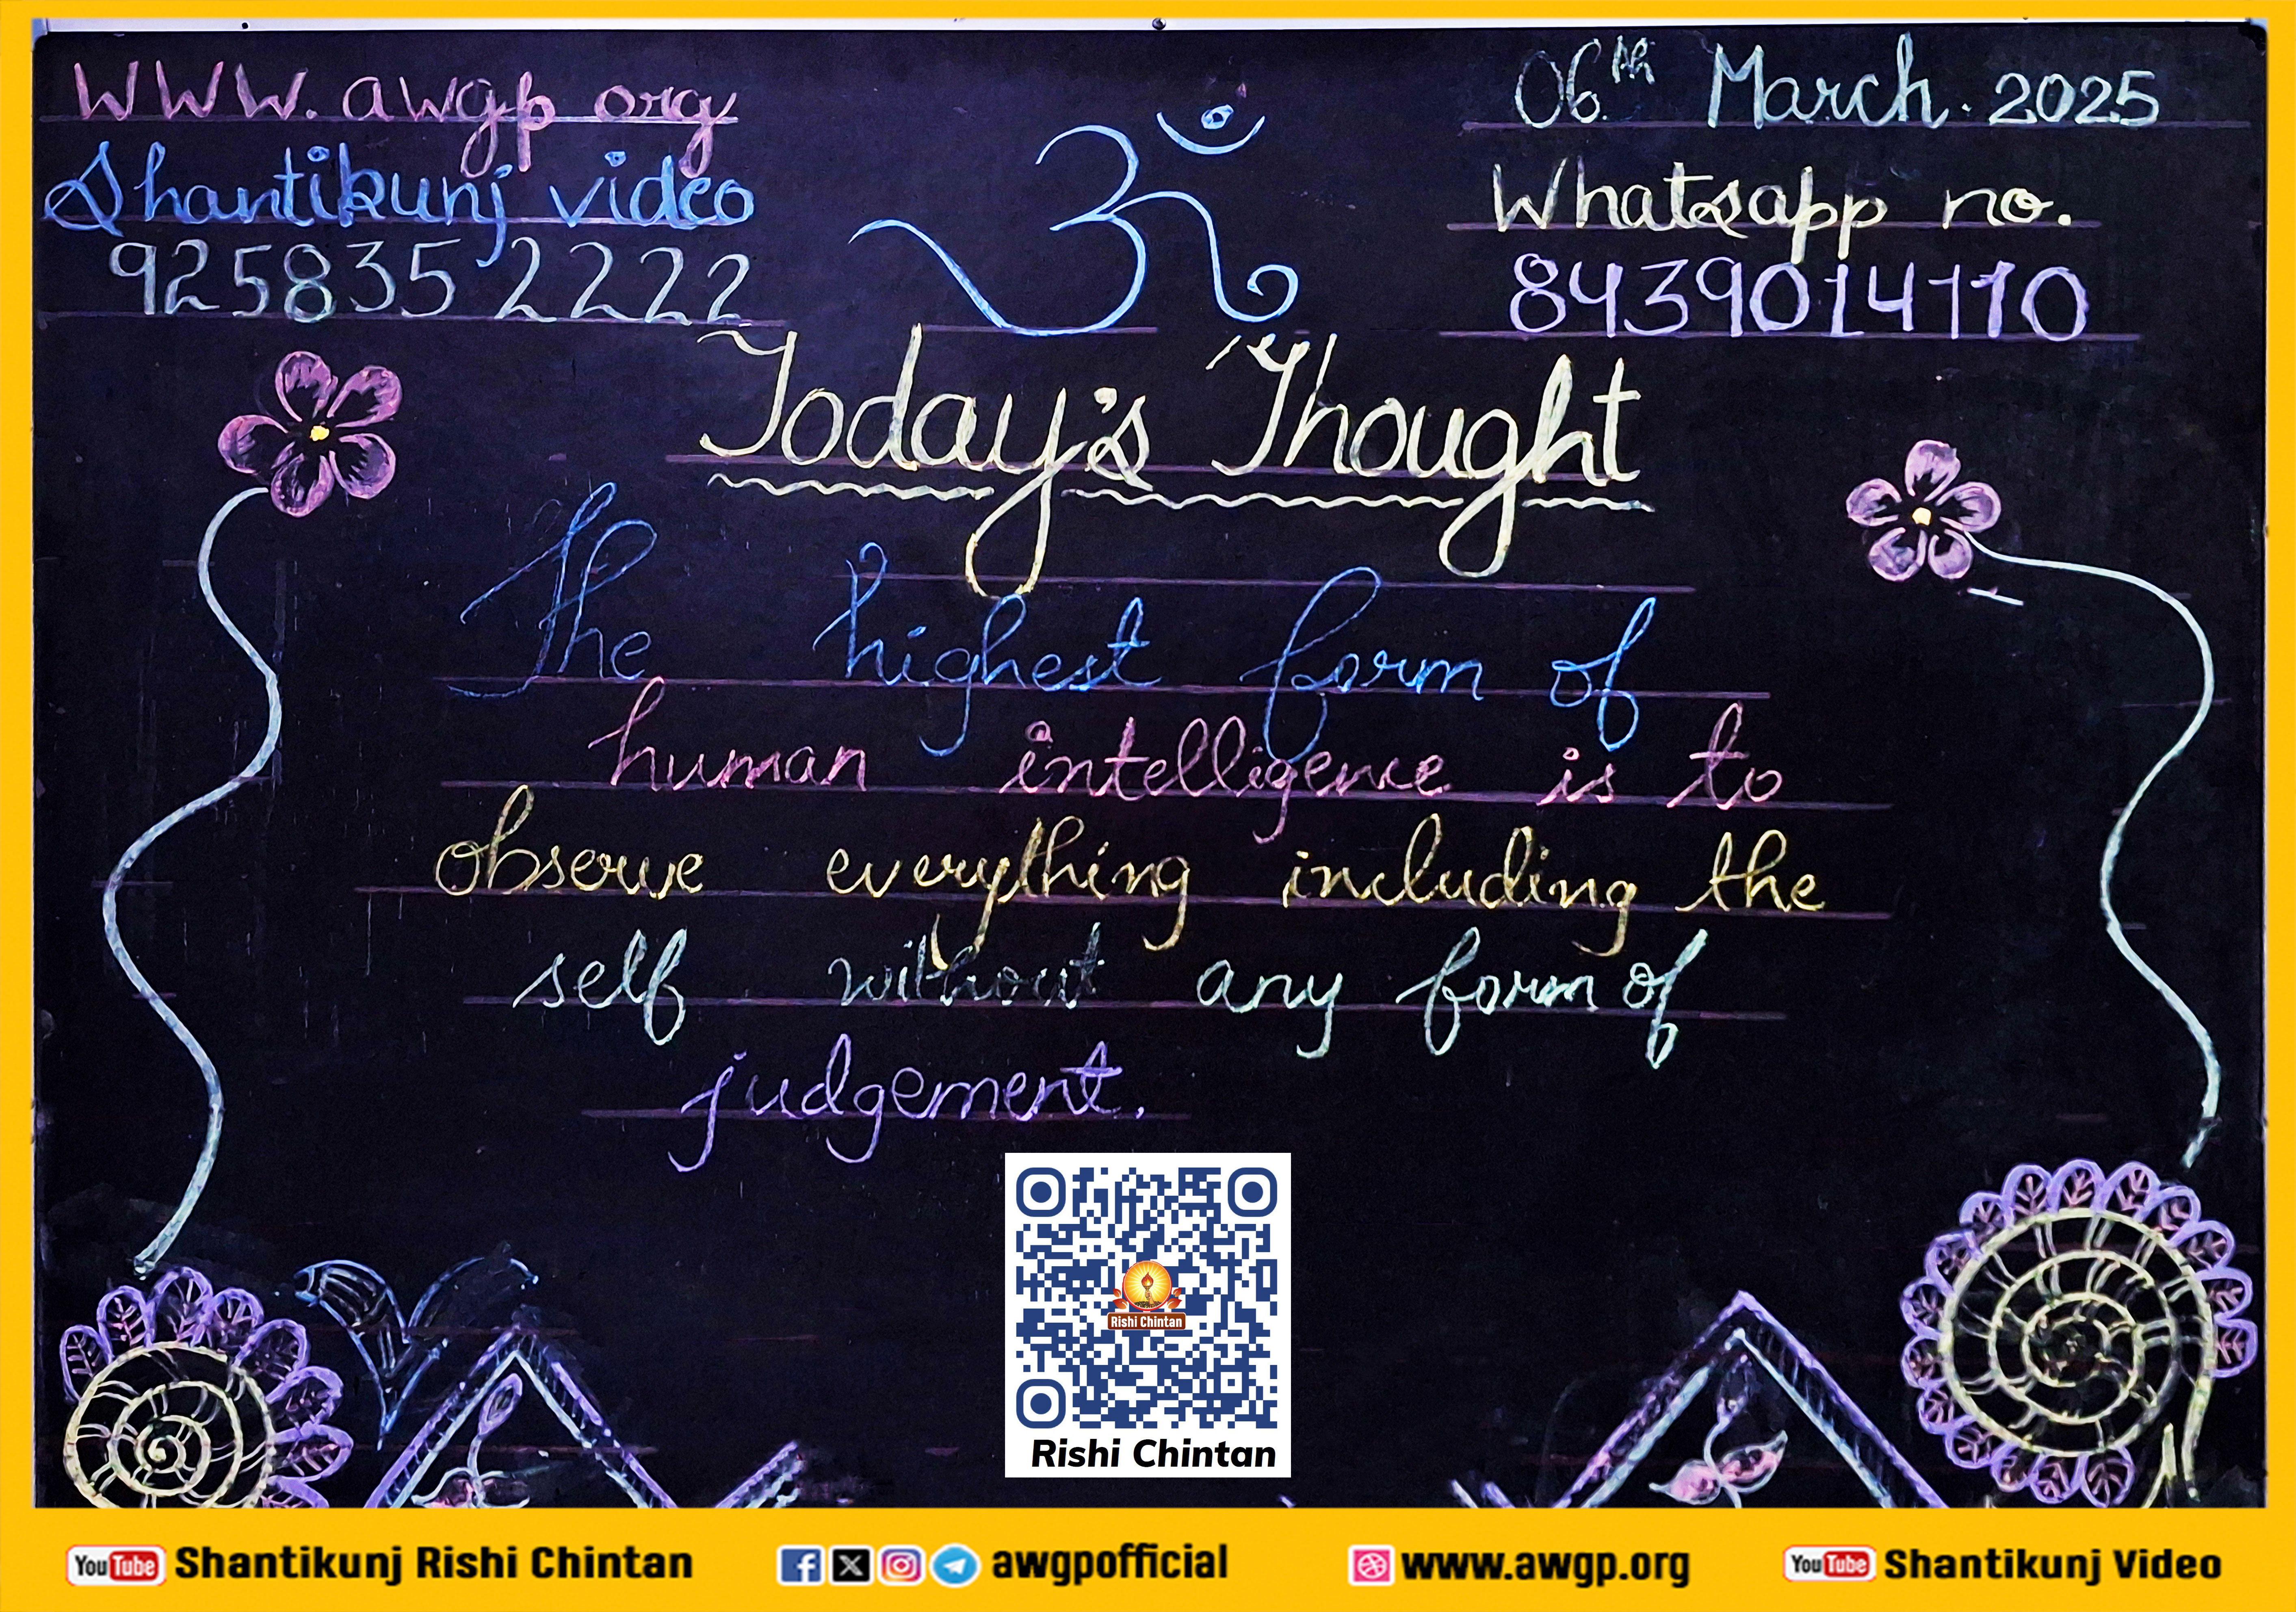 WWW. awgp org
Shantikunj video
925835 2222
ॐ
06th March. 2025
Whatsapp no.
8439014110
Today's Thought
The highest form of
human intelligence is to
observe everything including the
self without any form of
judgement.
Rishi Chintan
Rishi Chintan
YouTube Shantikunj Rishi Chintan
awgpofficial
www.awgp.org
YouTube Shantikunj Video